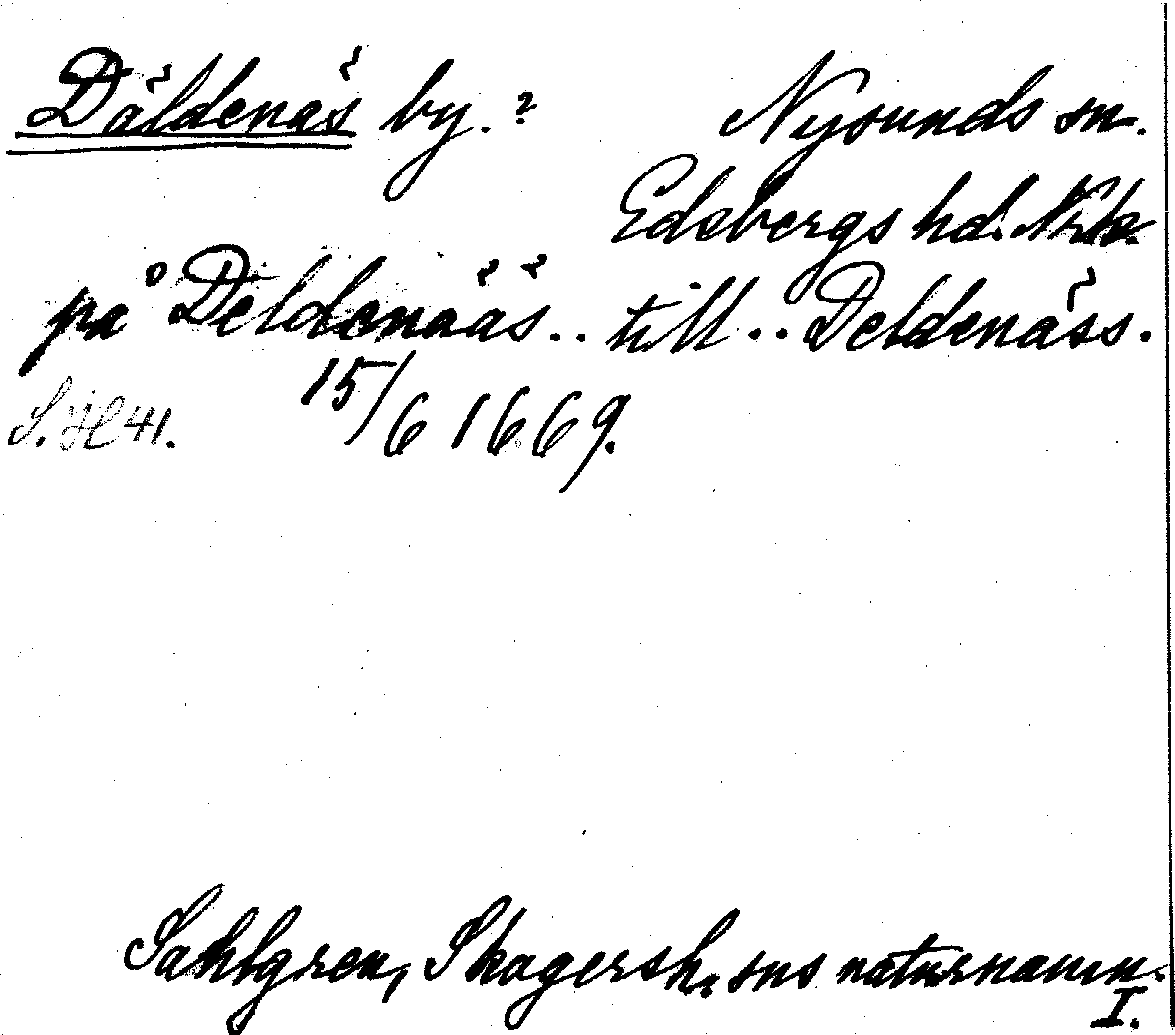 Däldenäs by.? Nysunds sn.
Edsbergs hd. Nrk.
på Deldenääs.. till.. Deldenäss.
S. H 41. 15/6 1669.
Sahlgren, Skagersh. sns naturnamn.
I.